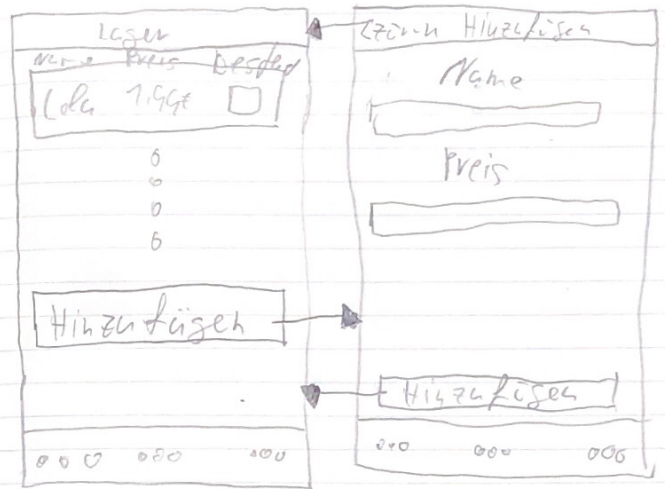 Lager
Name Preis Bestand
Cola 1,99€
Hinzufügen
zurück Hinzufügen
Name
Preis
Hinzufügen